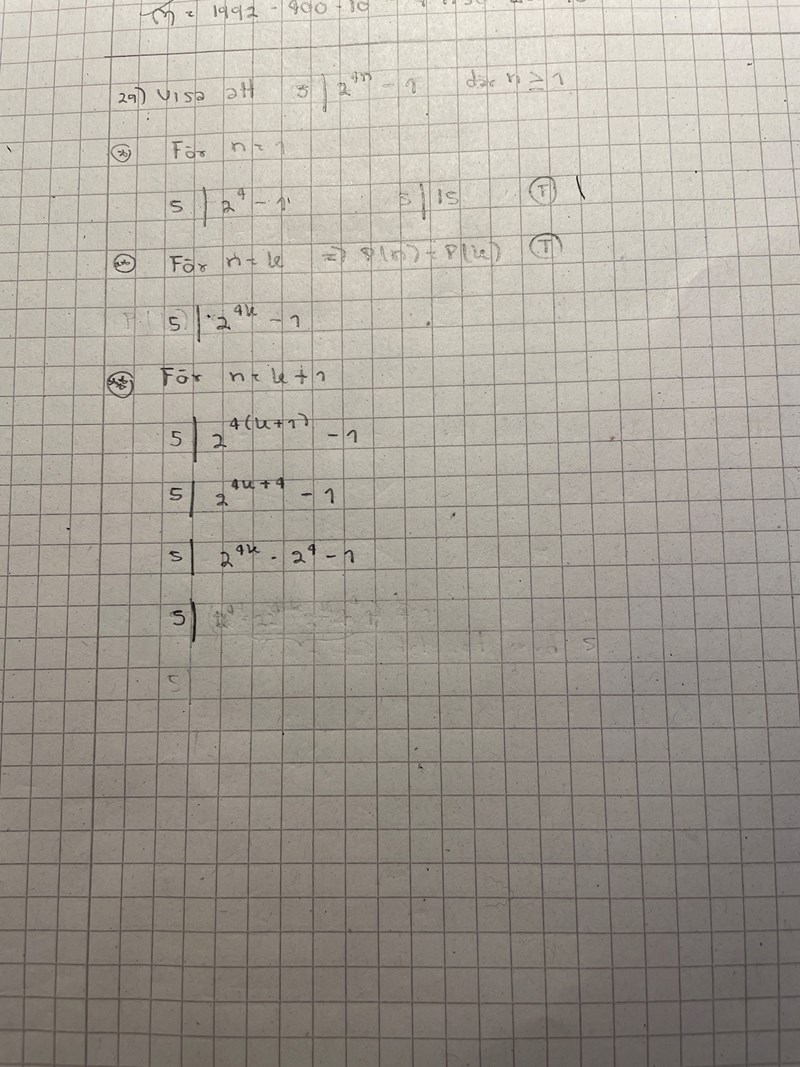 = 1992 - 900 - 10
29) Visa att 5 | 2^4n - 1 där n ≥ 1
(*) För n = 1
5 | 2^4 - 1 5 | 15 (T)
(**) För n = k => P(n) = P(k) (T)
5 | 2^4k - 1
(***) För n = k + 1
5 | 2^4(k+1) - 1
5 | 2^4k+4 - 1
5 | 2^4k · 2^4 - 1
5 |
5
5